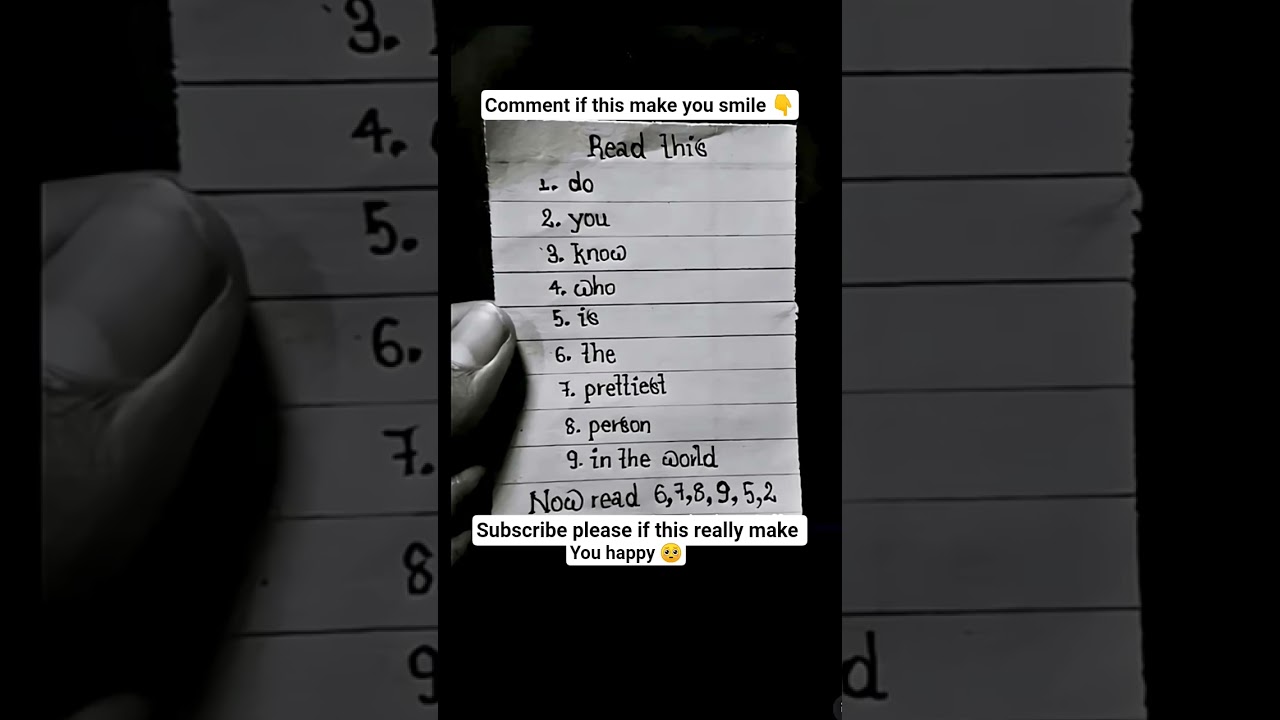 Comment if this make you smile 👇
Read this
1. do
2. you
3. know
4. who
5. is
6. the
7. prettiest
8. person
9. in the world
Now read 6,7,8,9,5,2
Subscribe please if this really make
You happy 🥺
3.
4.
5.
6.
7.
8
9
d